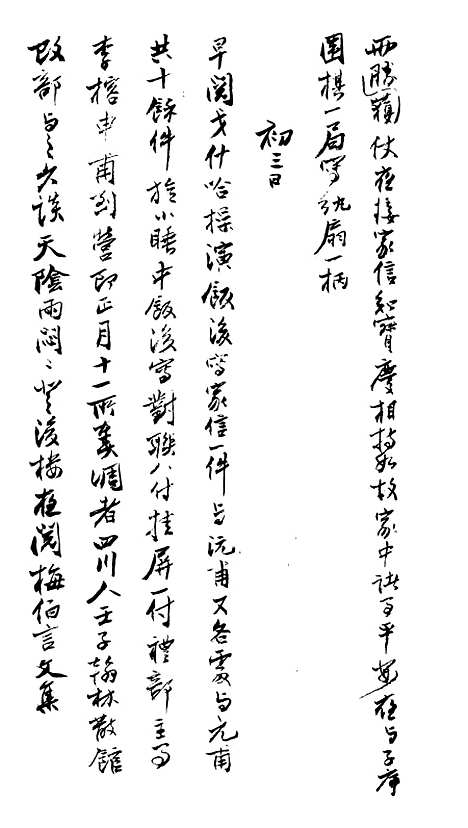 西勝一䕶仗夜接家信知寶慶相持如故家中諸事平安夜與子序
圍棋一局寫紈扇一柄
初三日
早閱戈什哈操演飯後寫家信一件與沅甫又各處與九甫
共十餘件旋小睡中飯後寫對聯八付挂屏一付禮部主事
李榕申甫到營即正月十一所奏調者四川人壬子翰林散館
改部與之久談天陰雨悶之至燈後樓夜閱梅伯言文集